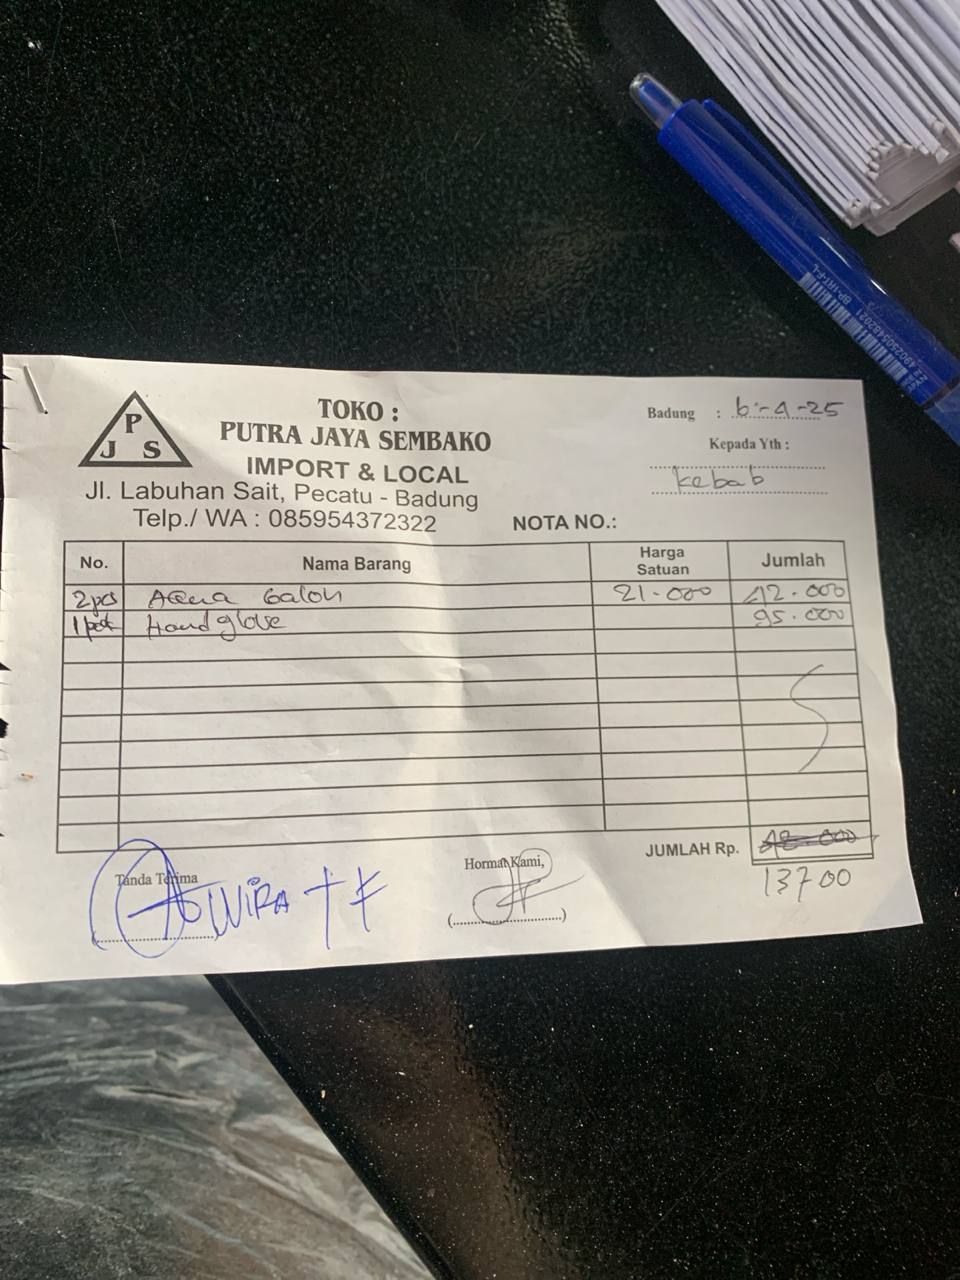 P
J S
TOKO :
PUTRA JAYA SEMBAKO
IMPORT & LOCAL
Jl. Labuhan Sait, Pecatu - Badung
Telp./ WA : 085954372322
Badung : 6-4-25
Kepada Yth :
Kebab
NOTA NO.:
No. Nama Barang Harga Satuan Jumlah
2pcs Aqua Galon 21.000 42.000
1 Hand glove 95.000
JUMLAH Rp. 42.000
13700
Tanda Terima
Hormat Kami,
WiRA
(....................)
BP-1RT-F-L
4902505482021